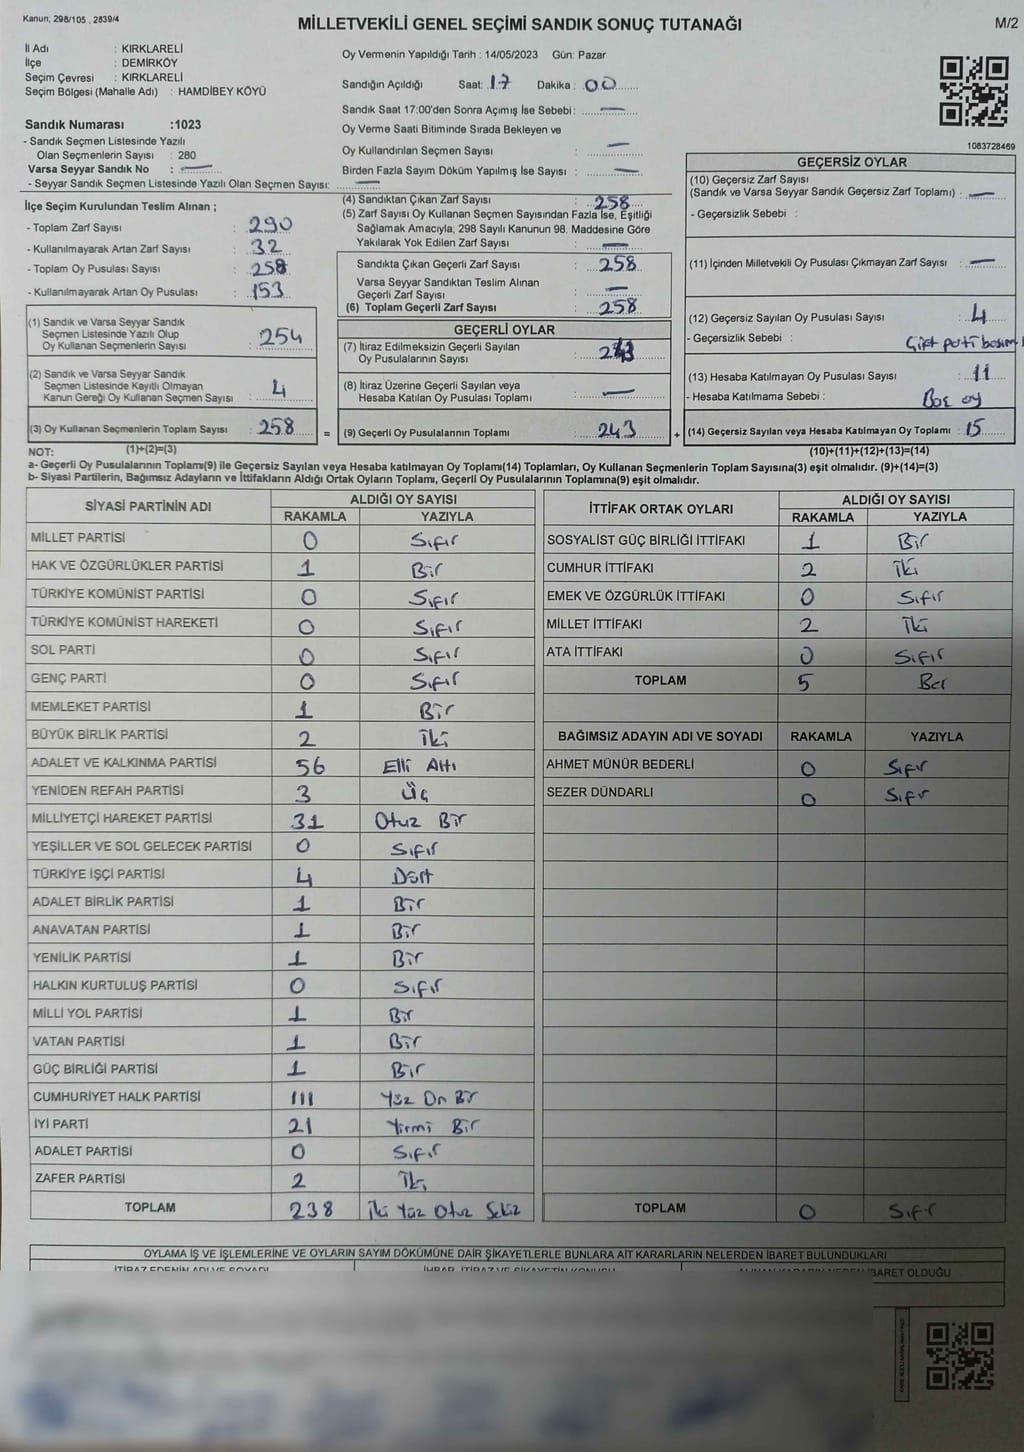 Kanun; 298/105 , 2839/4
MİLLETVEKİLİ GENEL SEÇİMİ SANDIK SONUÇ TUTANAĞI
M/2
İl Adı : KIRKLARELİ
İlçe : DEMİRKÖY
Seçim Çevresi : KIRKLARELİ
Seçim Bölgesi (Mahalle Adı) : HAMDİBEY KÖYÜ
Sandık Numarası :1023
- Sandık Seçmen Listesinde Yazılı
Olan Seçmenlerin Sayısı : 280
Varsa Seyyar Sandık No : —
- Seyyar Sandık Seçmen Listesinde Yazılı Olan Seçmen Sayısı: —
Oy Vermenin Yapıldığı Tarih : 14/05/2023 Gün: Pazar
Sandığın Açıldığı Saat: 17 Dakika : 00
Sandık Saat 17:00'den Sonra Açımış İse Sebebi : —
Oy Verme Saati Bitiminde Sırada Bekleyen ve
Oy Kullandırılan Seçmen Sayısı : —
Birden Fazla Sayım Döküm Yapılmış İse Sayısı : —
1083728469
İlçe Seçim Kurulundan Teslim Alınan ;
- Toplam Zarf Sayısı : 290
- Kullanılmayarak Artan Zarf Sayısı : 32
- Toplam Oy Pusulası Sayısı : 258
- Kullanılmayarak Artan Oy Pusulası : 153
(1) Sandık ve Varsa Seyyar Sandık
Seçmen Listesinde Yazılı Olup
Oy Kullanan Seçmenlerin Sayısı : 254
(2) Sandık ve Varsa Seyyar Sandık
Seçmen Listesinde Kayıtlı Olmayan
Kanun Gereği Oy Kullanan Seçmen Sayısı : 4
(3) Oy Kullanan Seçmenlerin Toplam Sayısı : 258
(4) Sandıktan Çıkan Zarf Sayısı : 258
(5) Zarf Sayısı Oy Kullanan Seçmen Sayısından Fazla İse, Eşitliği
Sağlamak Amacıyla; 298 Sayılı Kanunun 98. Maddesine Göre
Yakılarak Yok Edilen Zarf Sayısı : —
Sandıkta Çıkan Geçerli Zarf Sayısı : 258
Varsa Seyyar Sandıktan Teslim Alınan
Geçerli Zarf Sayısı : —
(6) Toplam Geçerli Zarf Sayısı : 258
GEÇERLİ OYLAR
(7) İtiraz Edilmeksizin Geçerli Sayılan
Oy Pusulalarının Sayısı : 243
(8) İtiraz Üzerine Geçerli Sayılan veya
Hesaba Katılan Oy Pusulası Toplamı : —
= (9) Geçerli Oy Pusulalarının Toplamı : 243
GEÇERSİZ OYLAR
(10) Geçersiz Zarf Sayısı
(Sandık ve Varsa Seyyar Sandık Geçersiz Zarf Toplamı) : —
- Geçersizlik Sebebi :
(11) İçinden Milletvekili Oy Pusulası Çıkmayan Zarf Sayısı : —
(12) Geçersiz Sayılan Oy Pusulası Sayısı : 4
- Geçersizlik Sebebi :
(13) Hesaba Katılmayan Oy Pusulası Sayısı : 11
- Hesaba Katılmama Sebebi : Boş oy
+ (14) Geçersiz Sayılan veya Hesaba Katılmayan Oy Toplamı : 15
NOT: (1)+(2)=(3)
(10)+(11)+(12)+(13)=(14)
a- Geçerli Oy Pusulalarının Toplamı(9) ile Geçersiz Sayılan veya Hesaba katılmayan Oy Toplamı(14) Toplamları, Oy Kullanan Seçmenlerin Toplam Sayısına(3) eşit olmalıdır. (9)+(14)=(3)
b- Siyasi Partilerin, Bağımsız Adayların ve İttifakların Aldığı Ortak Oyların Toplamı, Geçerli Oy Pusulalarının Toplamına(9) eşit olmalıdır.
SİYASİ PARTİNİN ADI ALDIĞI OY SAYISI
RAKAMLA YAZIYLA
MİLLET PARTİSİ 0 Sıfır
HAK VE ÖZGÜRLÜKLER PARTİSİ 1 Bir
TÜRKİYE KOMÜNİST PARTİSİ 0 Sıfır
TÜRKİYE KOMÜNİST HAREKETİ 0 Sıfır
SOL PARTİ 0 Sıfır
GENÇ PARTİ 0 Sıfır
MEMLEKET PARTİSİ 1 Bir
BÜYÜK BİRLİK PARTİSİ 2 İki
ADALET VE KALKINMA PARTİSİ 56 Elli Altı
YENİDEN REFAH PARTİSİ 3 Üç
MİLLİYETÇİ HAREKET PARTİSİ 31 Otuz Bir
YEŞİLLER VE SOL GELECEK PARTİSİ 0 Sıfır
TÜRKİYE İŞÇİ PARTİSİ 4 Dört
ADALET BİRLİK PARTİSİ 1 Bir
ANAVATAN PARTİSİ 1 Bir
YENİLİK PARTİSİ 1 Bir
HALKIN KURTULUŞ PARTİSİ 0 Sıfır
MİLLİ YOL PARTİSİ 1 Bir
VATAN PARTİSİ 1 Bir
GÜÇ BİRLİĞİ PARTİSİ 1 Bir
CUMHURİYET HALK PARTİSİ 111 Yüz On Bir
İYİ PARTİ 21 Yirmi Bir
ADALET PARTİSİ 0 Sıfır
ZAFER PARTİSİ 2 İki
TOPLAM 238 İki Yüz Otuz Sekiz
İTTİFAK ORTAK OYLARI ALDIĞI OY SAYISI
RAKAMLA YAZIYLA
SOSYALİST GÜÇ BİRLİĞİ İTTİFAKI 1 Bir
CUMHUR İTTİFAKI 2 İki
EMEK VE ÖZGÜRLÜK İTTİFAKI 0 Sıfır
MİLLET İTTİFAKI 2 İki
ATA İTTİFAKI 0 Sıfır
TOPLAM 5 Beş
BAĞIMSIZ ADAYIN ADI VE SOYADI RAKAMLA YAZIYLA
AHMET MÜNÜR BEDERLİ 0 Sıfır
SEZER DÜNDARLI 0 Sıfır
TOPLAM 0 Sıfır
OYLAMA İŞ VE İŞLEMLERİNE VE OYLARIN SAYIM DÖKÜMÜNE DAİR ŞİKAYETLERLE BUNLARA AİT KARARLARIN NELERDEN İBARET BULUNDUKLARI
İTİRAZ EDENİN ADI VE SOYADI İHBAR, İTİRAZ VE ŞİKAYETİN KONUSU İBARET OLDUĞU